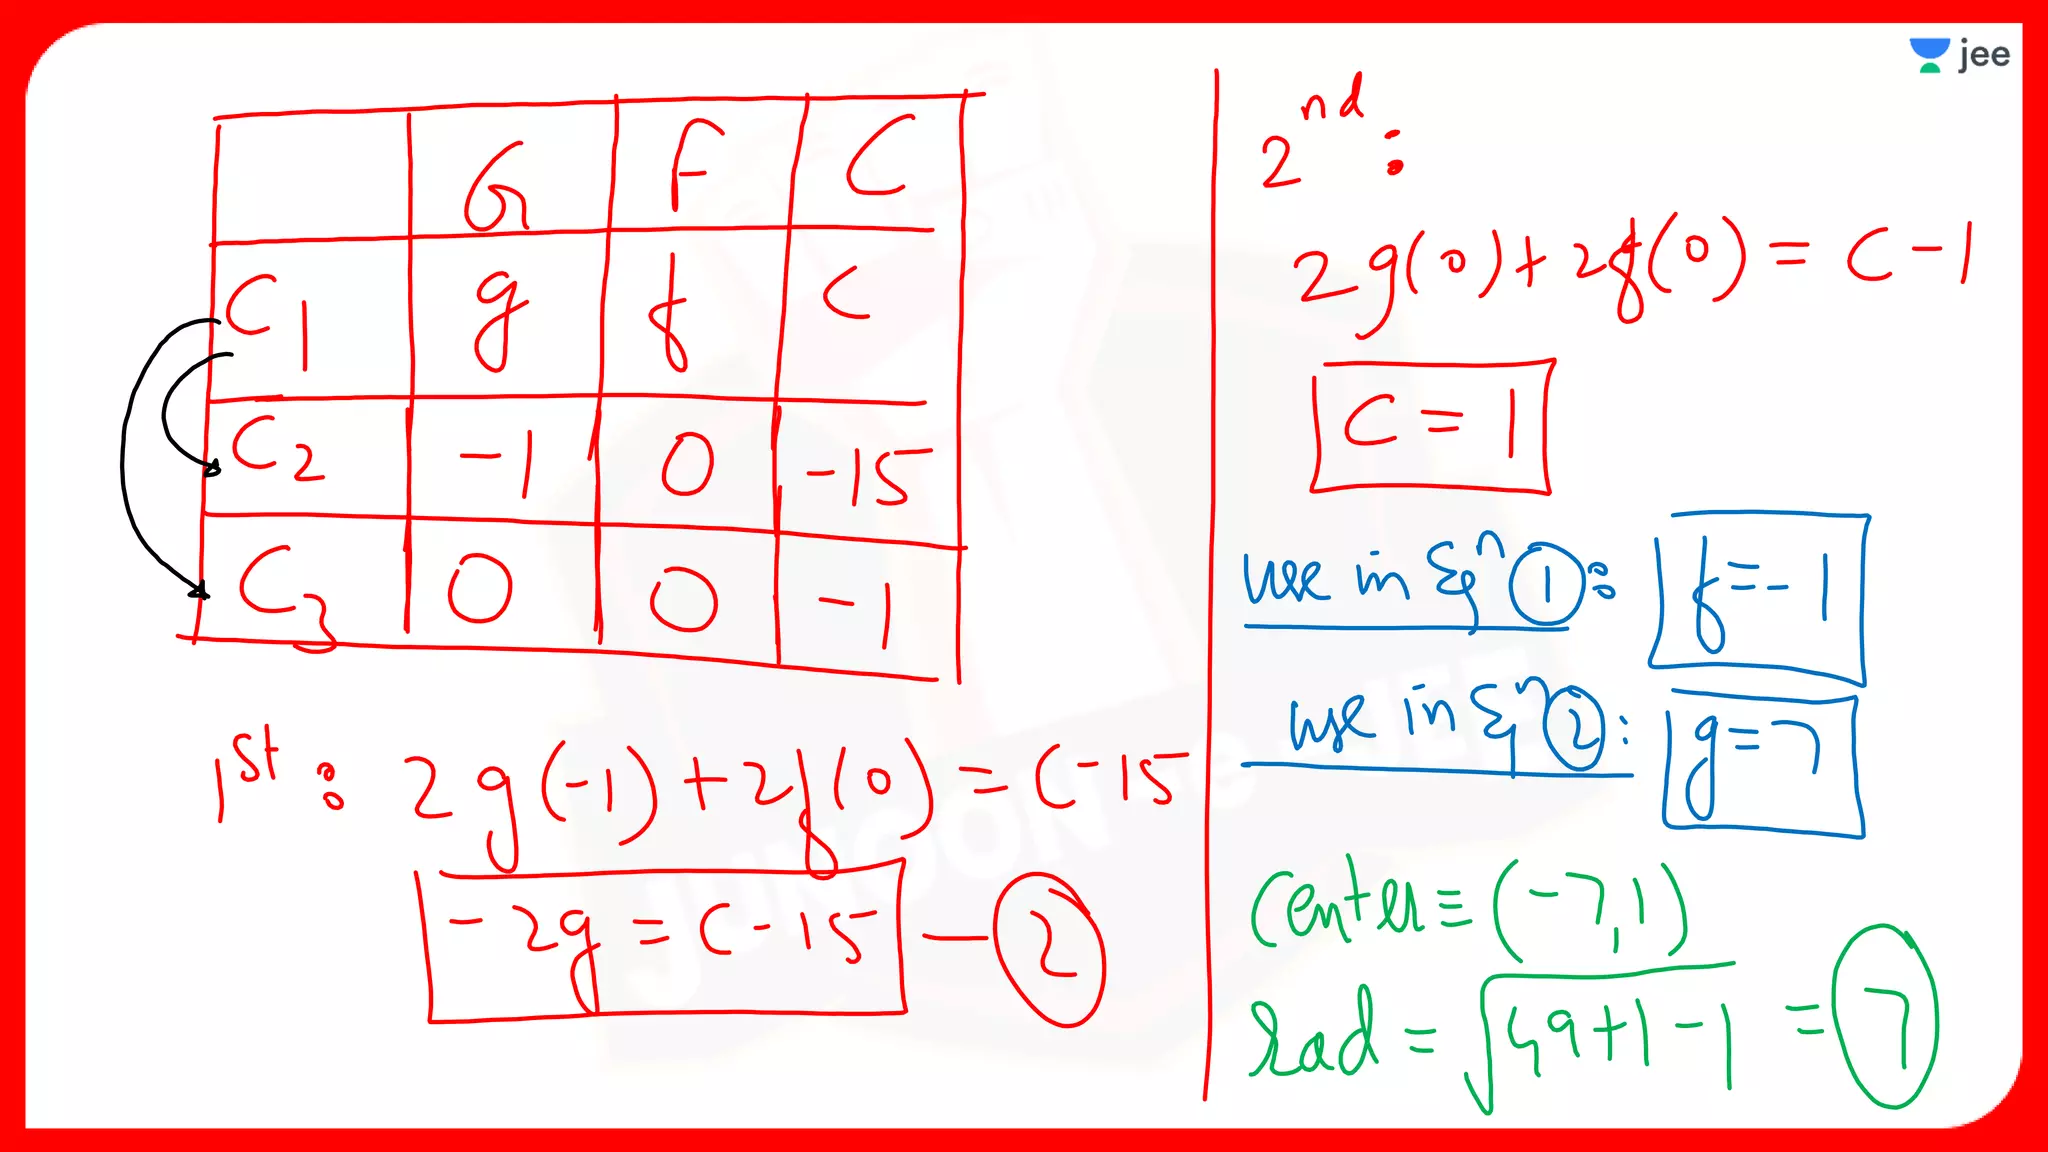 jee
G F C
C1 g f C
C2 -1 0 -15
C3 0 0 -1
1st: 2g(-1)+2f(0) = C-15
-2g = C-15 — 2
2nd:
2g(0)+2f(0) = C-1
C = 1
use in Eqn 1: f=-1
use in Eqn 2: g=7
Center ≡ (-7,1)
rad = √49+1-1 = 7